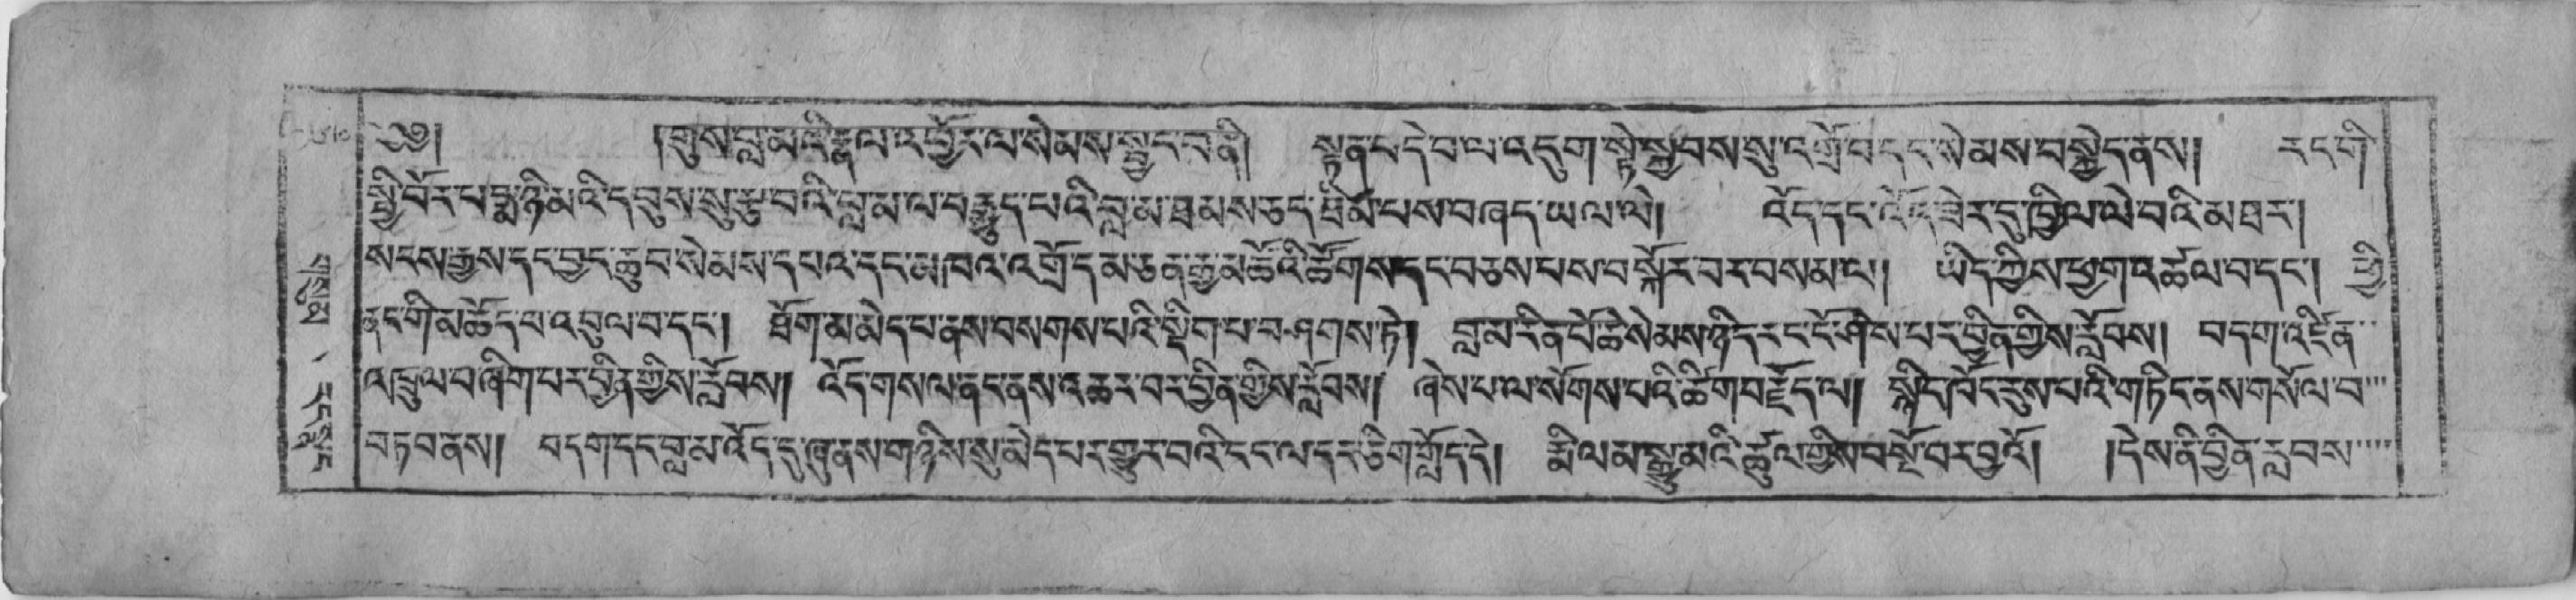 ༄༅། །གུས་བླ་མའི་རྣལ་འབྱོར་ལ་སེམས་སྦྱང་བ་ནི། སྟན་བདེ་བ་ལ་འདུག་སྟེ་སྐྱབས་སུ་འགྲོ་བ་དང་སེམས་བསྐྱེད་ནས། རང་གི
སྤྱི་བོར་པདྨ་ཉི་མའི་དབུས་སུ་རྩ་བའི་བླ་མ་ལ་བརྒྱུད་པའི་བླ་མ་ཐམས་ཅད་ཐིམ་པས་བཞད་ཡལ་ལེ། འོད་དང་འོད་ཟེར་དུ་ཁྱིལ་ལེ་བའི་མཐར།
སངས་རྒྱས་དང་བྱང་ཆུབ་སེམས་དཔའ་དང་མཁའ་འགྲོ་དམ་ཅན་རྒྱ་མཚོའི་ཚོགས་དང་བཅས་པས་བསྐོར་བར་བསམ་ལ། ཡིད་ཀྱིས་ཕྱག་འཚལ་བ་དང་། ཕྱི
ནང་གི་མཆོད་པ་འབུལ་བ་དང་། ཐོག་མ་མེད་པ་ནས་བསགས་པའི་སྡིག་པ་བཤགས་ཏེ། བླ་མ་རིན་པོ་ཆེ་སེམས་ཉིད་རང་ངོ་ཤེས་པར་བྱིན་གྱིས་རློབས། བདག་འཛིན
འཁྲུལ་བ་ཞིག་པར་བྱིན་གྱིས་རློབས། འོད་གསལ་ནང་ནས་འཆར་བར་བྱིན་གྱིས་རློབས། ཞེས་པ་ལ་སོགས་པའི་ཚིག་བརྗོད་ལ། སྙིང་ཁོང་རུས་པའི་གཏིང་ནས་གསོལ་བ
བཏབ་ནས། བདག་དང་བླ་མ་འོད་དུ་ཞུ་ནས་གཉིས་སུ་མེད་པར་གྱུར་བའི་ངང་ལ་དར་ཅིག་གློད་དེ། རྨི་ལམ་སྒྱུ་མའི་ཚུལ་གྱིས་བསྔོ་བར་བྱའོ། །དེས་ནི་བྱིན་རླབས